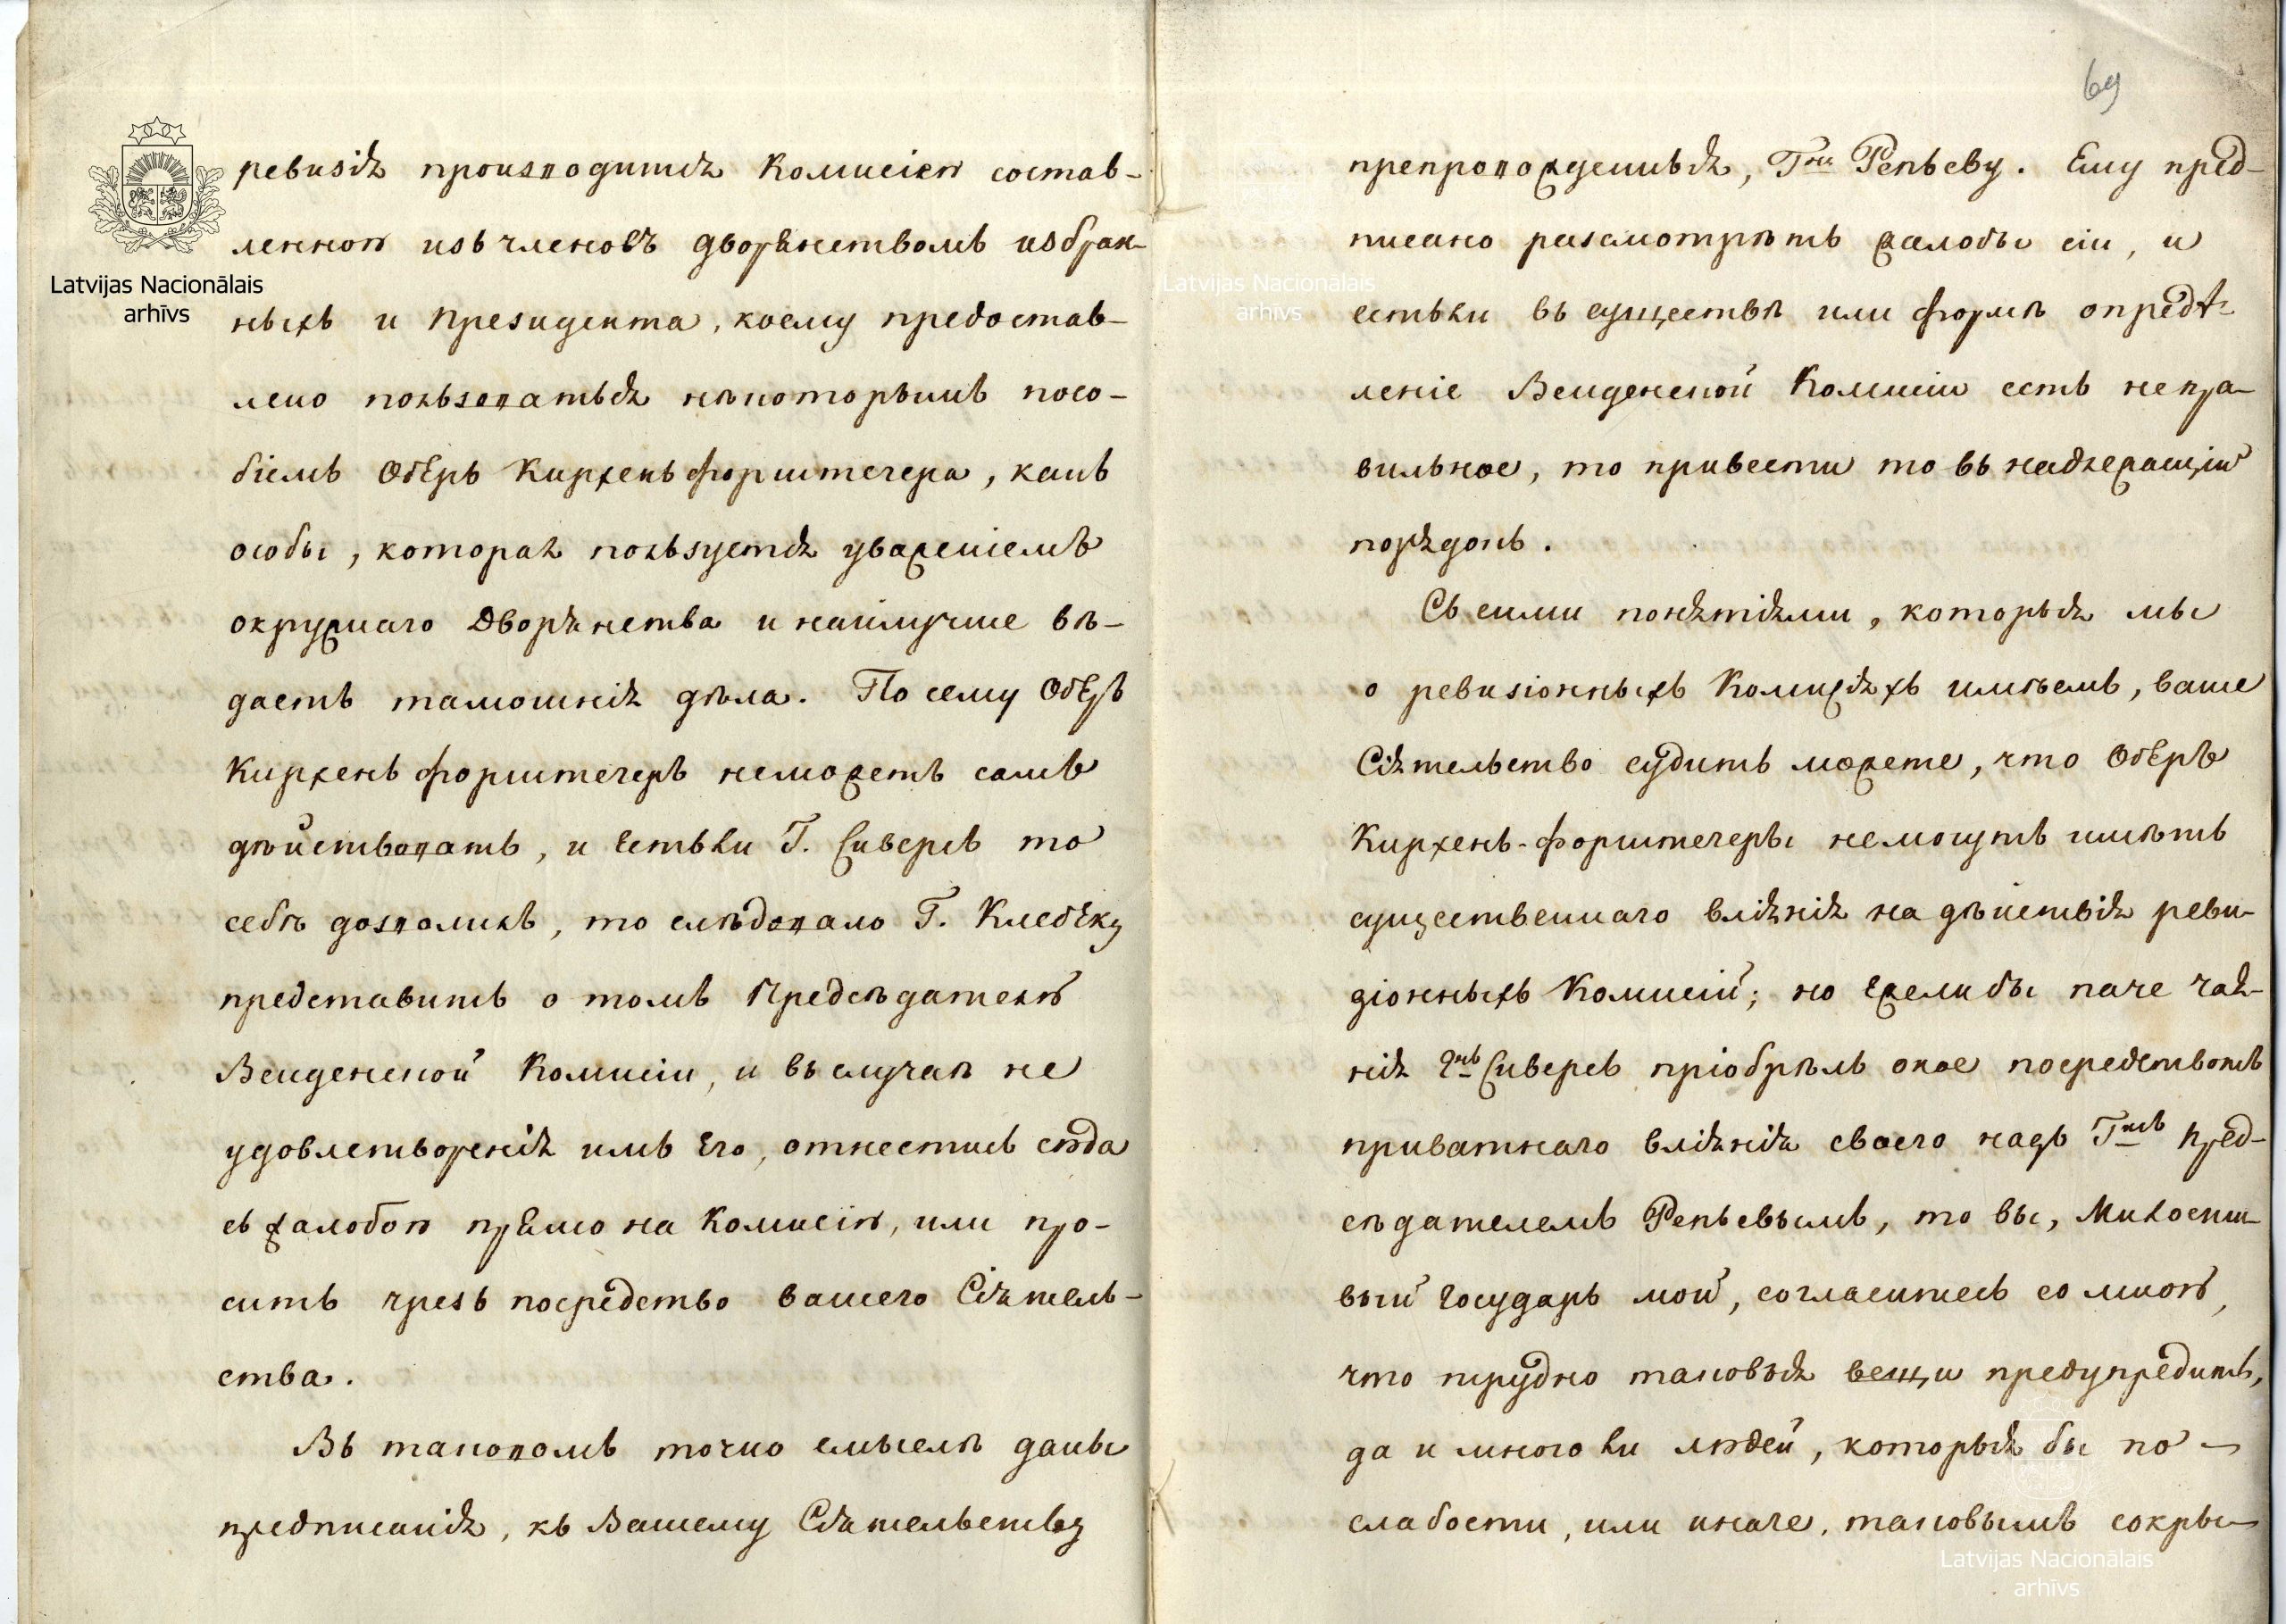 69
Latvijas Nacionālais
arhīvs
ревизія производится Коммисіею состав-
ленною изъ членовъ дворянствомъ избран-
ныхъ и Президента, коему предостав-
лено пользоваться нѣкоторымъ посо-
біемъ Оберъ Кирхенъ форштегера, какъ
особы, которая пользуется уваженіемъ
окружнаго Дворянства и наилучше вѣ-
даетъ тамошнія дѣла. По сему Оберъ
Кирхенъ форштегеръ неможетъ самъ
дѣйствовать, и естьли Г. Сиверсъ то
себѣ дозволилъ, то слѣдовало Г. Клебеку
представить о томъ Предсѣдателю
Венденской Комисіи, и въ случаѣ не
удовлетворенія имъ его, отнестись сюда
съ жалобою прямо на Комисію, или про-
сить чрезъ посредство вашего Сіятель-
ства.
Въ таковомъ точно смыслѣ даны
предписанія, къ Вашему Сіятельству
препровожденныя, Гну Репьеву. Ему пред-
писано разсмотрѣть жалобы сіи, и
естьли въ существѣ или формѣ опредѣ-
леніе Венденской Комисіи есть непра-
вильное, то привести то въ надлежащій
порядокъ.
Съ сими понятіями, которыя мы
о ревизіонныхъ Комисіяхъ имѣемъ, ваше
Сіятельство судить можете, что Оберъ
Кирхенъ-форштегеры немогутъ имѣть
существеннаго вліянія на дѣйствія реви-
зіонныхъ Комисій; но ежели бы паче чая-
нія Гнъ Сиверсъ пріобрѣлъ оное посредствомъ
приватнаго вліянія своего надъ Гмъ Пред-
сѣдателемъ Репьевымъ, то вы, Милости-
вый Государь мой, согласитесь со мною,
что трудно таковыя вещи предупредить,
да и много ли людей, которыя бы по
слабости, или иначе, таковымъ сокры-